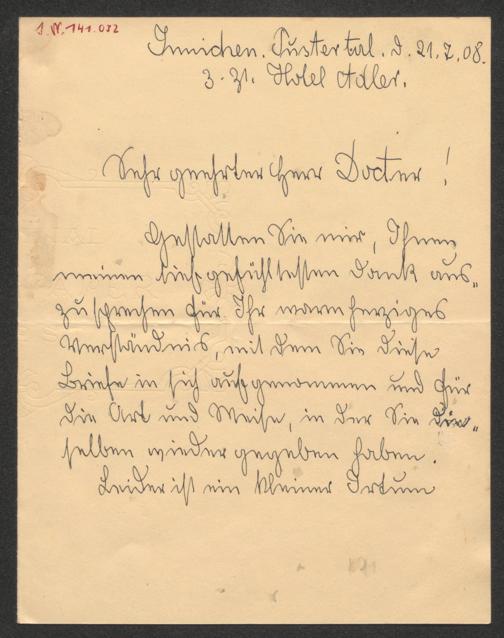 I.N. 141.032
Innichen. Pustertal. d. 21.7.08.
z. Zt. Hotel Adler.
Sehr geehrter Herr Docter!
Gestatten Sie mir, Ihnen
meinen tiefgefühltesten Dank aus-
zusprechen für Ihr warmherziges
Verständnis, mit dem Sie diese
Briefe in sich aufgenommen und für
die Art und Weise, in der Sie die-
selben wieder gegeben haben.
Leider ist ein kleiner Irtum